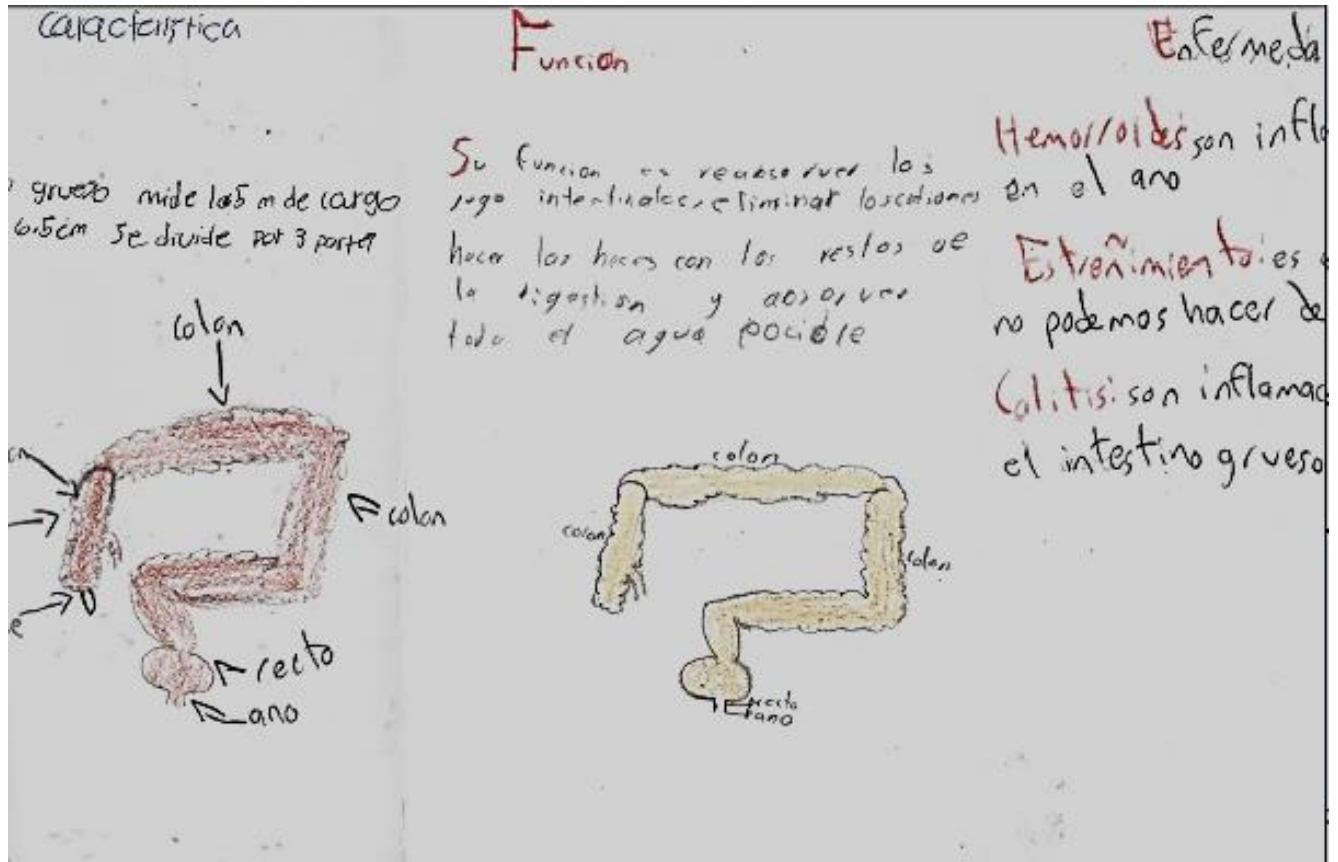 Caracteristica
grueso mide 1.5 m de largo
6.5cm se divide por 3 partes
colon
colon
recto
ano
Función
Su funcion es reabsorver los
jugo intestinales, eliminar
hacer las heces con los restos de
la digestion y absorver
todo el agua pocible
colon
colon
colon
recto
ano
Enfermeda
Hemorroides son infla
en el ano
Estreñimiento: es
no podemos hacer de
Colitis: son inflamac
el intestino grueso